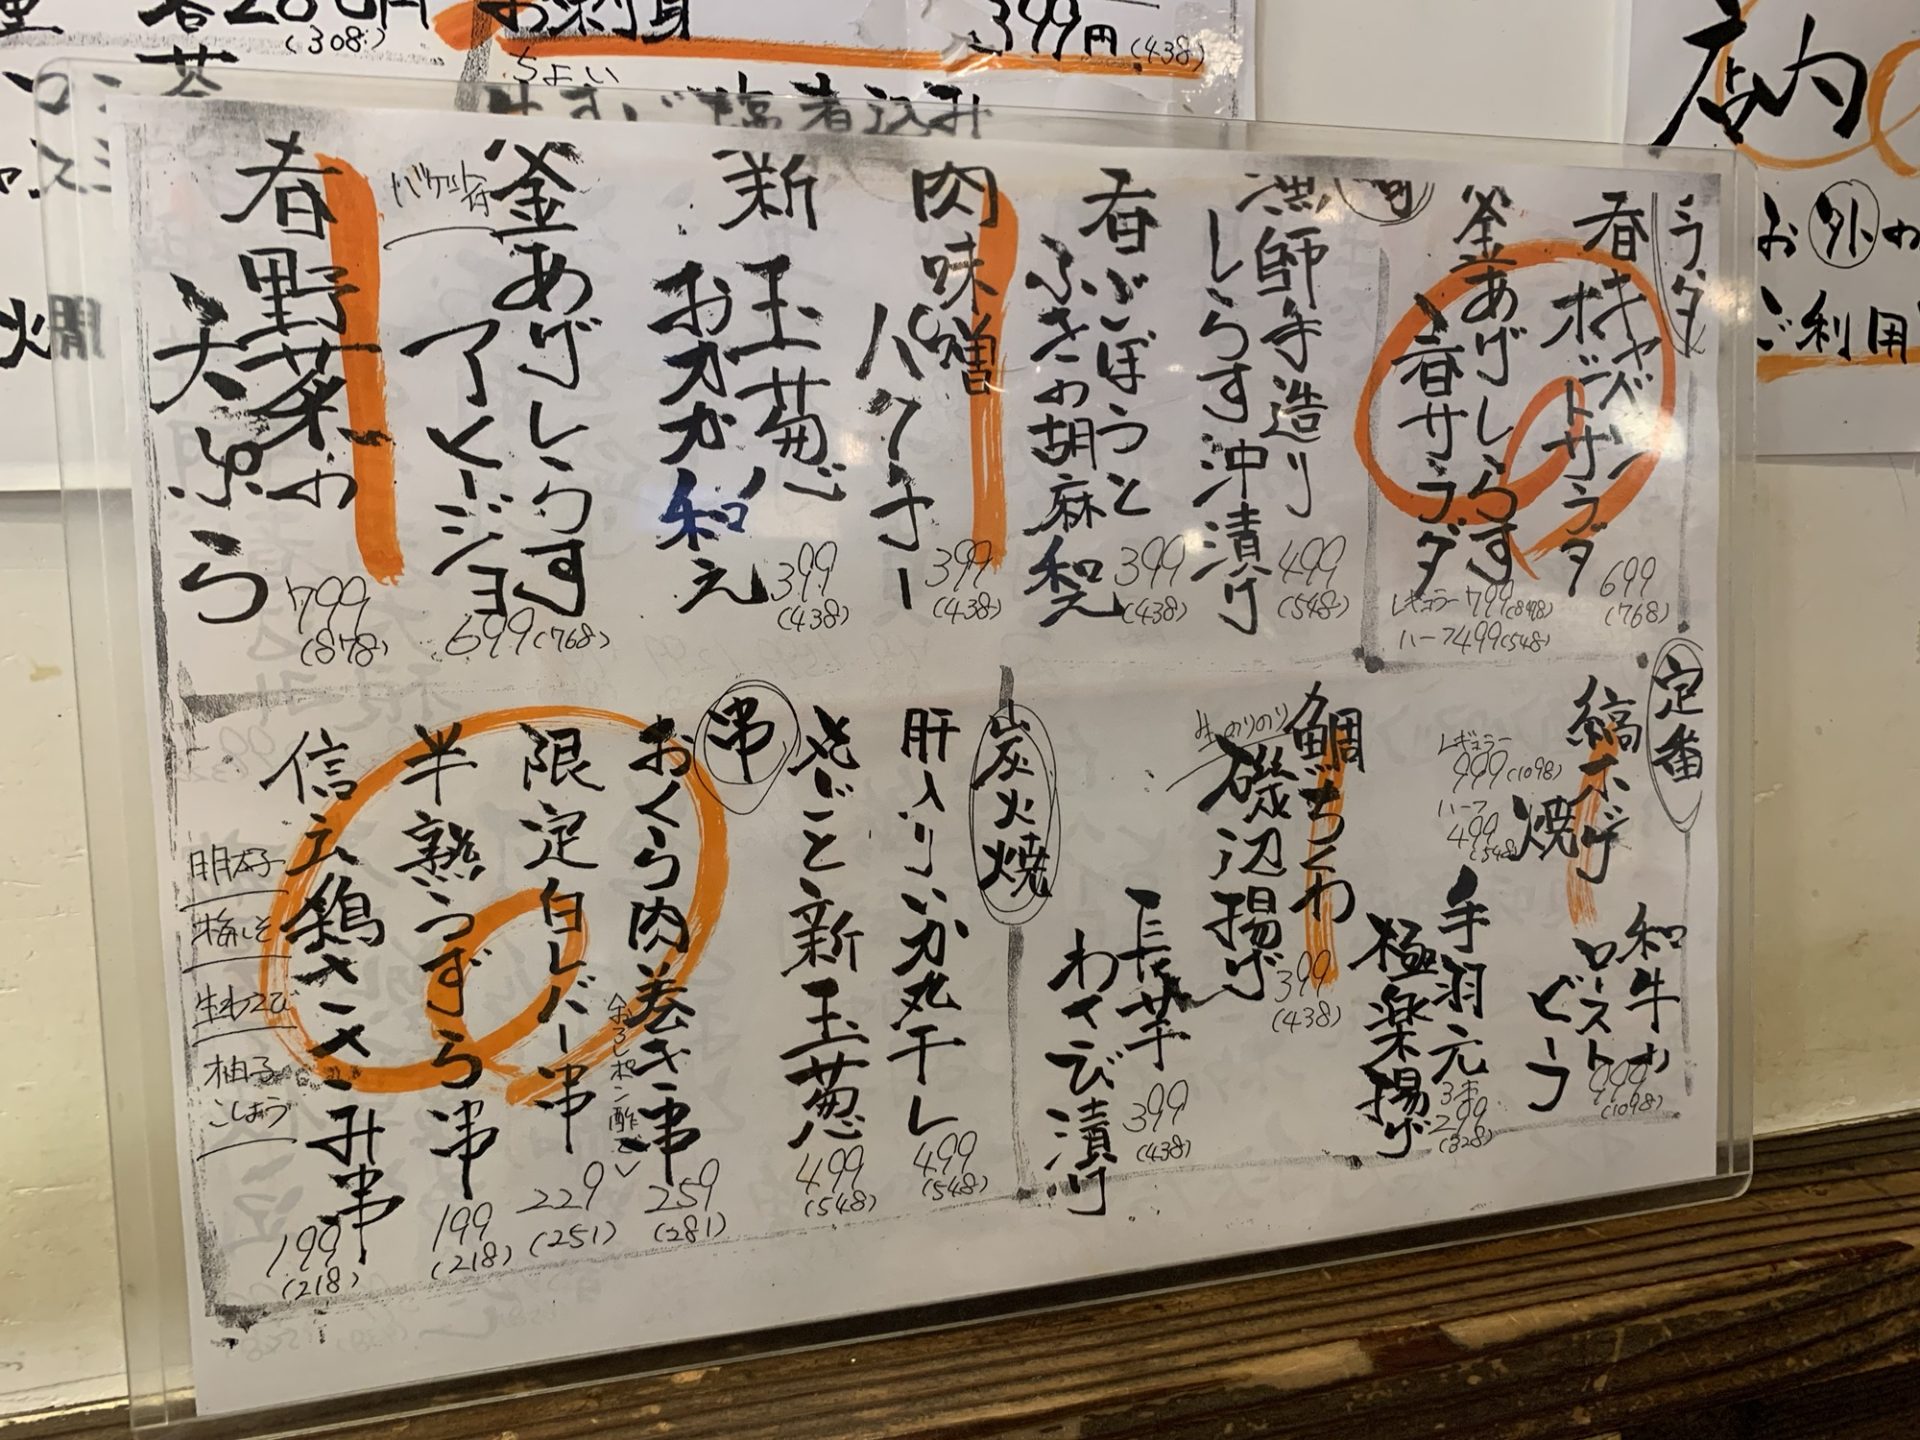 お刺身
399円(438)
(308)
ちょい
煮込み
店内
お外
ご利用
サラダ
春キャベツ
ポテトサラダ
699
(768)
釜あげしらす
春サラダ
レギュラー799(878)
ハーフ499(548)
漁師手造り
しらす沖漬け
499
(548)
春ごぼうと
ふきの胡麻和え
399
(438)
肉味噌
パクチー
399
(438)
新玉葱
おかか和え
399
(438)
釜あげしらす
アヒージョ
バケット付
699(768)
春野菜の
天ぷら
799
(878)
定番
縞ホッケ
焼
レギュラー
999(1098)
ハーフ
499
(548)
和牛の
ロースト
ビーフ
999
(1098)
手羽元
極楽揚げ
3本
299
(328)
鯛ちくわ
磯辺揚げ
399
(438)
長芋
わさび漬け
399
(438)
炭火焼
肝入りいか丸干し
499
(548)
丸ごと新玉葱
499
(548)
串
おくら肉巻き串
259
(281)
限定白レバー串
おろしポン酢で
229
(251)
半熟うずら串
199
(218)
信玄鶏ささみ串
199
(218)
明太子
梅しそ
生わさび
柚子
こしょう